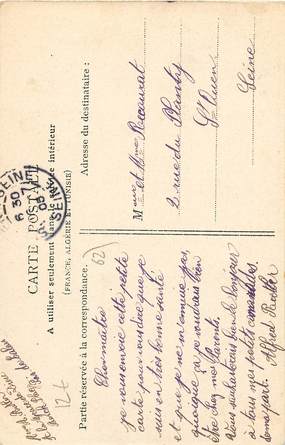 CARTE POSTALE
A utiliser seulement dans le service intérieur
(FRANCE, ALGÉRIE ET TUNISIE)
Partie réservée à la correspondance.
Adresse du destinataire :
62
124
Cher maître
je vous envoie cette petite
carte pour vous dire que je
suis en très bonne santé
et que je ne m'ennuie pas,
quoique je voudrais bien
être chez mes Parents.
Vous souhaiterez bien le bonjour
à tous mes petits camarades
de ma part. Alfred
M
et Mme
2 rue du Planty
St Ouen
Seine
SEINE
6 30